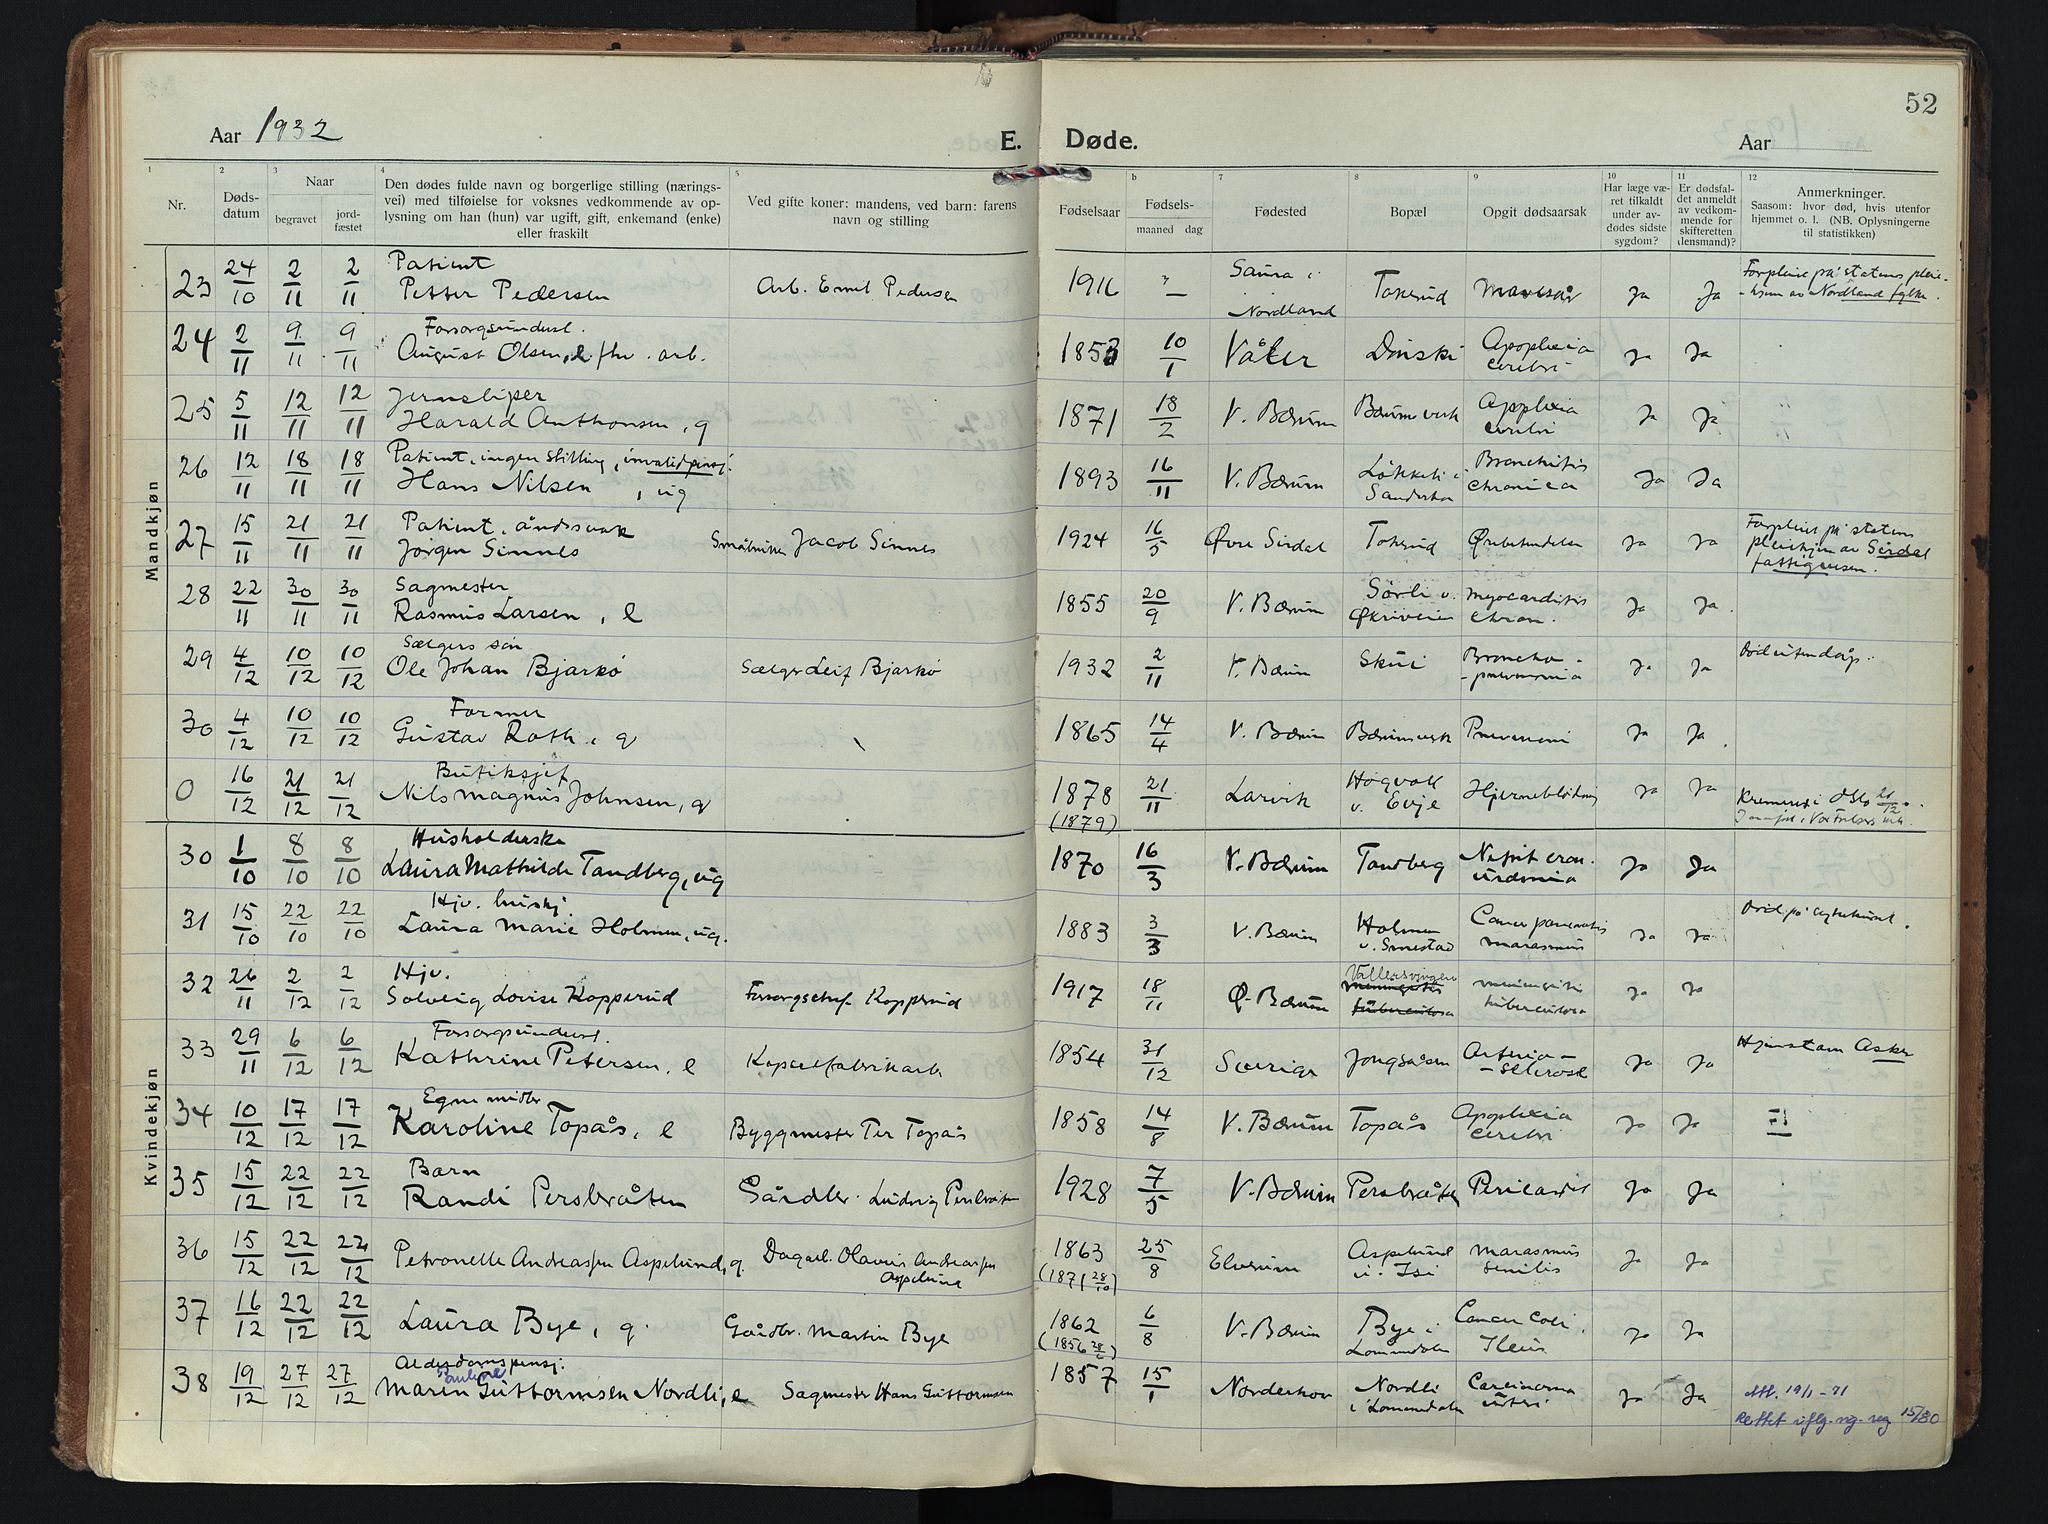 52
Aar 1932 E. Døde. Aar
1 2 3 4 5 6 7 8 9 10 11 12
Nr. Døds-datum Naar begravet jord-fæstet Den dødes fulde navn og borgerlige stilling (nærings-vei) med tilføielse for voksnes vedkommende av op-lysning om han (hun) var ugift, gift, enkemand (enke) eller fraskilt Ved gifte koner: mandens, ved barn: farens navn og stilling Fødselsaar Fødsels-maaned dag Fødested Bopæl Opgit dødsaarsak Har læge væ-ret tilkaldt under av-dødes sidste sygdom? Er dødsfal-det anmeldt av vedkom-mende for skifteretten (lensmand)? Anmerkninger. Saasom: hvor død, hvis utenfor hjemmet o. l. (NB. Oplysningerne til statistikken)
Mandkjøn
23 24/10 2/11 2/11 Patient Petter Pedersen Arb. Emil Pedersen 1916 – Nordland Tokerud Mavesår Ja Ja Forpleiet på statens pleie-hjem av Nordland fylke.
24 2/11 9/11 9/11 Forsorgsunderst. August Olsen, e fhv. arb. 1853 10/1 Våler Dønski Apoplexia cerebri Ja Ja
25 5/11 12/11 12/11 Jernsliper Harald Anthonsen, g 1871 18/2 V. Bærum Bærumsverk Apoplexia cerebri Ja Ja
26 12/11 18/11 18/11 Patient, ingen stilling, invalidpensj. Hans Nilsen, ug 1893 16/11 V. Bærum Løkket i Sandvika Bronchitis chronica Ja Ja
27 15/11 21/11 21/11 Patient, åndssvak Jørgen Sinnes Småbruker Jacob Sinnes 1924 16/5 Øvre Sirdal Tokerud Ørebetendelse Ja Ja Forpleiet på statens pleiehjem av Sirdal fattigvesen.
28 22/11 30/11 30/11 Sagmester Rasmus Larsen, e 1855 20/9 V. Bærum Sørli v. Økriveien Myocarditis chron. Ja Ja
29 4/12 10/12 10/12 Sælgers søn Ole Johan Bjarkø Sælger Leif Bjarkø 1932 2/11 V. Bærum Skui Broncho-pneumonia Ja Ja Død utendåp.
30 4/12 10/12 10/12 Former Gustav Roth, g 1865 14/4 V. Bærum Bærumsverk Pneumoni Ja Ja
0 16/12 21/12 21/12 Butiksjef Nils Magnus Johnsen, g 1878 (1879) 21/11 Larvik Høgvoll v. Evje Hjerneblødning Ja Ja Kremert i Oslo 21/12. Jordf. i Vor Frelsers kirke.
Kvindekjøn
30 1/10 8/10 8/10 Husholderske Laura Mathilde Tandberg, ug 1870 16/3 V. Bærum Tandberg Nefrit cron. Ja Ja
31 15/10 22/10 22/10 Hjv. huskj. Laura Marie Holmen, ug. 1883 3/3 V. Bærum Holmen v. Smestad Cancer pancreatis marasmus Ja Ja Død på sykehuset.
32 26/11 2/12 2/12 Hjv. Solveig Lovise Kopperud Forsorgschef Kopperud 1917 18/11 Ø. Bærum Vallersvingen meningitis tuberculosa meningitis tuberculosa Ja Ja
33 29/11 6/12 6/12 Forsorgsunderst. Kathrine Petersen, e Kapselfabrikarb 1854 31/12 Sverige Jongsåsen Arterio-sclerose Ja Ja Hjemstavn Asker
34 10/12 17/12 17/12 Egne midler Karoline Topås, e Byggmester Per Topås 1858 14/8 V. Bærum Topås Apoplexia cerebri Ja Ja
35 15/12 22/12 22/12 Barn Randi Persbråten Gårdbr. Ludvig Persbråten 1928 7/5 V. Bærum Persbråten Pericardit Ja Ja
36 15/12 22/12 22/12 Petronelle Andreassen Aspelund, g. Dagarb. Olavus Andreassen Aspelund 1863 (1871 28/10) 25/8 Elverum Aspelund v. Isi Marasmus senilis Ja Ja
37 16/12 22/12 22/12 Laura Bye, g. Gårdbr. Martin Bye 1862 (1856 28/6) 6/8 V. Bærum Bye i Lommedalen Cancer coli. Ileus Ja Ja
38 19/12 27/12 27/12 Alderdomspensj. Maren Pauline Guttormsen Nordli, e Sagmester Hans Guttormsen 1857 15/1 Norderhov Nordli i Lommedalen Carcinoma uteri Ja Ja Att. 19/1-71 Rettet iflg. ng. reg 15/80